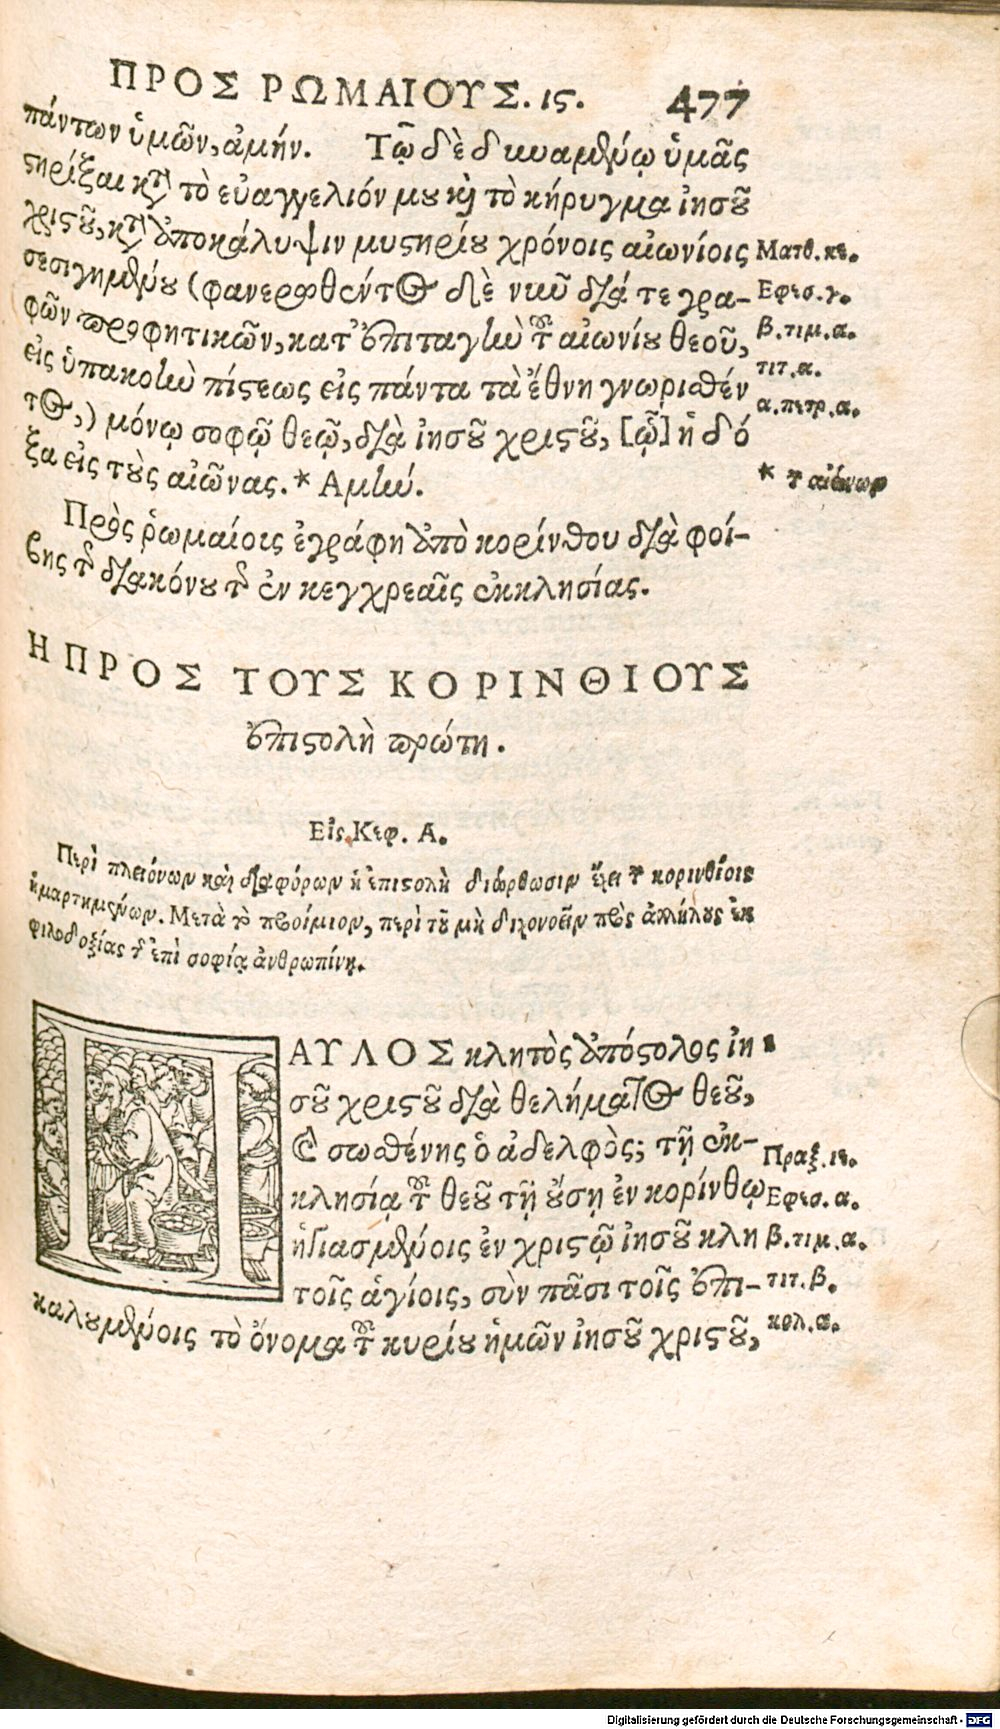 ΠΡΟΣ ΡΩΜΑΙΟΥΣ. ις. 477
πάντων ὑμῶν, ἀμήν. Τῷ δὲ δυναμένῳ ὑμᾶς
στηρίξαι κτ τὸ εὐαγγελιόν μου καὶ τὸ κήρυγμα ἰησοῦ
χριστοῦ, κτ ἀποκάλυψιν μυστηρίου χρόνοις αἰωνίοις
σεσιγημένου (φανερωθέντος δὲ νῦν διά τε γρα-
φῶν προφητικῶν, κατ' ἐπιταγὴν τοῦ αἰωνίου θεοῦ,
εἰς ὑπακοὴν πίστεως εἰς πάντα τὰ ἔθνη γνωρισθέν
τος,) μόνῳ σοφῷ θεῷ, διὰ ἰησοῦ χριστοῦ, [ᾧ] ἡ δό
ξα εἰς τοὺς αἰῶνας.* Αμήν.
Ματθ.κε.
Εφεσ.γ.
β.τιμ.α.
τιτ.α.
α.πετρ.α.
* τ αἰώνωρ
Πρὸς ῥωμαίοις ἐγράφη ἀπὸ κορίνθου διὰ φοί-
βης τῆς διακόνου τῆς ἐν κεγχρεαῖς ἐκκλησίας.
Η ΠΡΟΣ ΤΟΥΣ ΚΟΡΙΝΘΙΟΥΣ
ἐπιστολὴ πρώτη.
Εἰς Κεφ. Α.
Περὶ πλειόνων καὶ διαφόρων ἡ ἐπιστολὴ διόρθωσιν ἔχει τ κορινθίοις
ἡμαρτημένων. Μετὰ τὸ προίμιον, περὶ τοῦ μὴ διχονοεῖν πρὸς ἀλλήλους ἐκ
φιλοδοξίας τ ἐπὶ σοφίᾳ ἀνθρωπίνῃ.
ΠΑΥΛΟΣ κλητὸς ἀπόστολος ἰη
σοῦ χριστοῦ διὰ θελήματος θεοῦ,
καὶ σωσθένης ὁ ἀδελφὸς; τῇ ἐκ-
κλησίᾳ τοῦ θεοῦ τῇ οὔσῃ ἐν κορίνθῳ
ἡγιασμένοις ἐν χριστῷ ἰησοῦ κλη
τοῖς ἁγίοις, σὺν πᾶσι τοῖς ἐπι-
καλουμένοις τὸ ὄνομα τοῦ κυρίου ἡμῶν ἰησοῦ χριστοῦ,
Πραξ.ιε.
Εφεσ.α.
β.τιμ.α.
τιτ.β.
κολ.α.
Digitalisierung gefördert durch die Deutsche Forschungsgemeinschaft - DFG